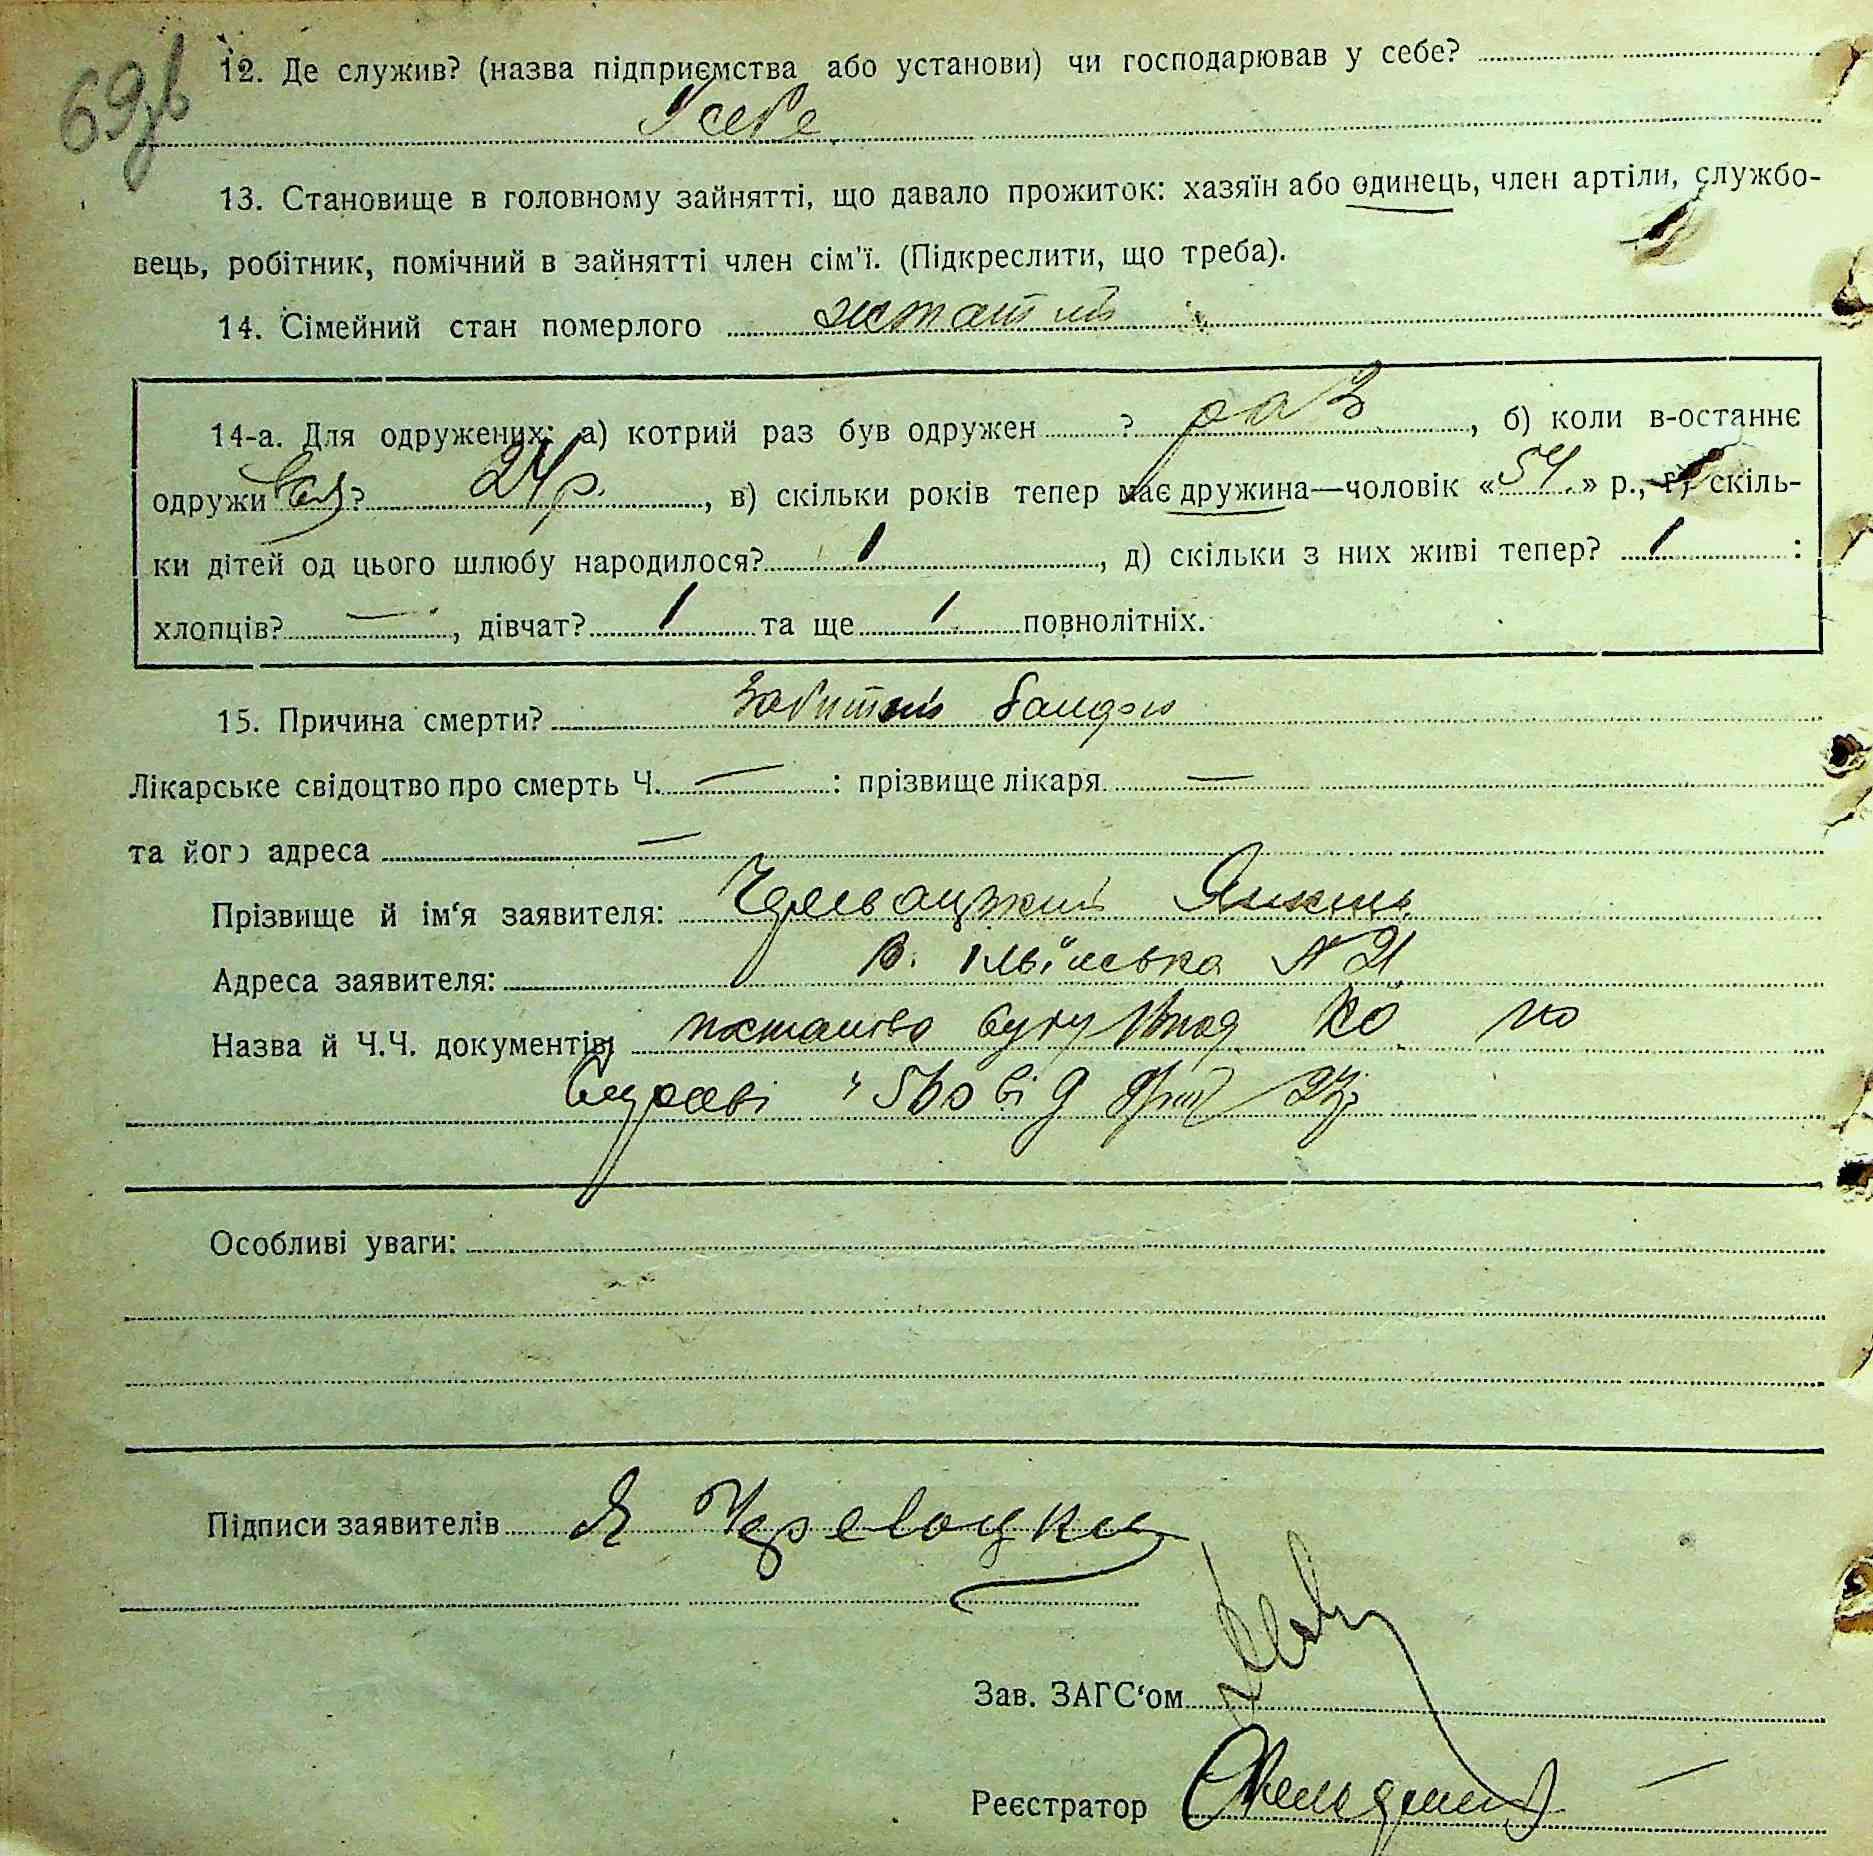 69зв
12. Де служив? (назва підприємства або установи) чи господарював у себе?
У себе
13. Становище в головному зайнятті, що давало прожиток: хазяїн або одинець, член артіли, службо-
вець, робітник, помічний в зайнятті член сім'ї. (Підкреслити, що треба).
14. Сімейний стан померлого жонатий
14-а. Для одружених: а) котрий раз був одружен ? раз, б) коли в-останнє
одружився? 24 р., в) скільки років тепер має дружина—чоловік «54» р., г) скіль-
ки дітей од цього шлюбу народилося? 1, д) скільки з них живі тепер? 1 :
хлопців? —, дівчат? 1 та ще 1 повнолітніх.
15. Причина смерти? Забитий бандою
Лікарське свідоцтво про смерть Ч. — : прізвище лікаря —
та його адреса —
Прізвище й ім'я заявителя: Черевацький
Адреса заявителя: В. Іллінська № 21
Назва й Ч.Ч. документів: по
від
Особливі уваги:
Підписи заявителів Я Черевацкий
Зав. ЗАГС'ом
Реєстратор